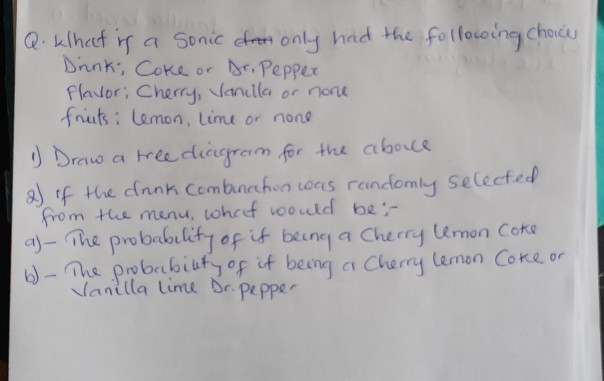 Q. What if a Sonic only had the following choices
Drink: Coke or Dr. Pepper
flavor: Cherry, Vanilla or none
fruits: lemon, lime or none
1) Draw a tree diagram for the above
2) if the drink combination was randomly selected
from the menu, what would be:-
a) - The probability of it being a Cherry lemon Coke
b) - The probability of it being a Cherry lemon Coke or
Vanilla lime Dr. pepper